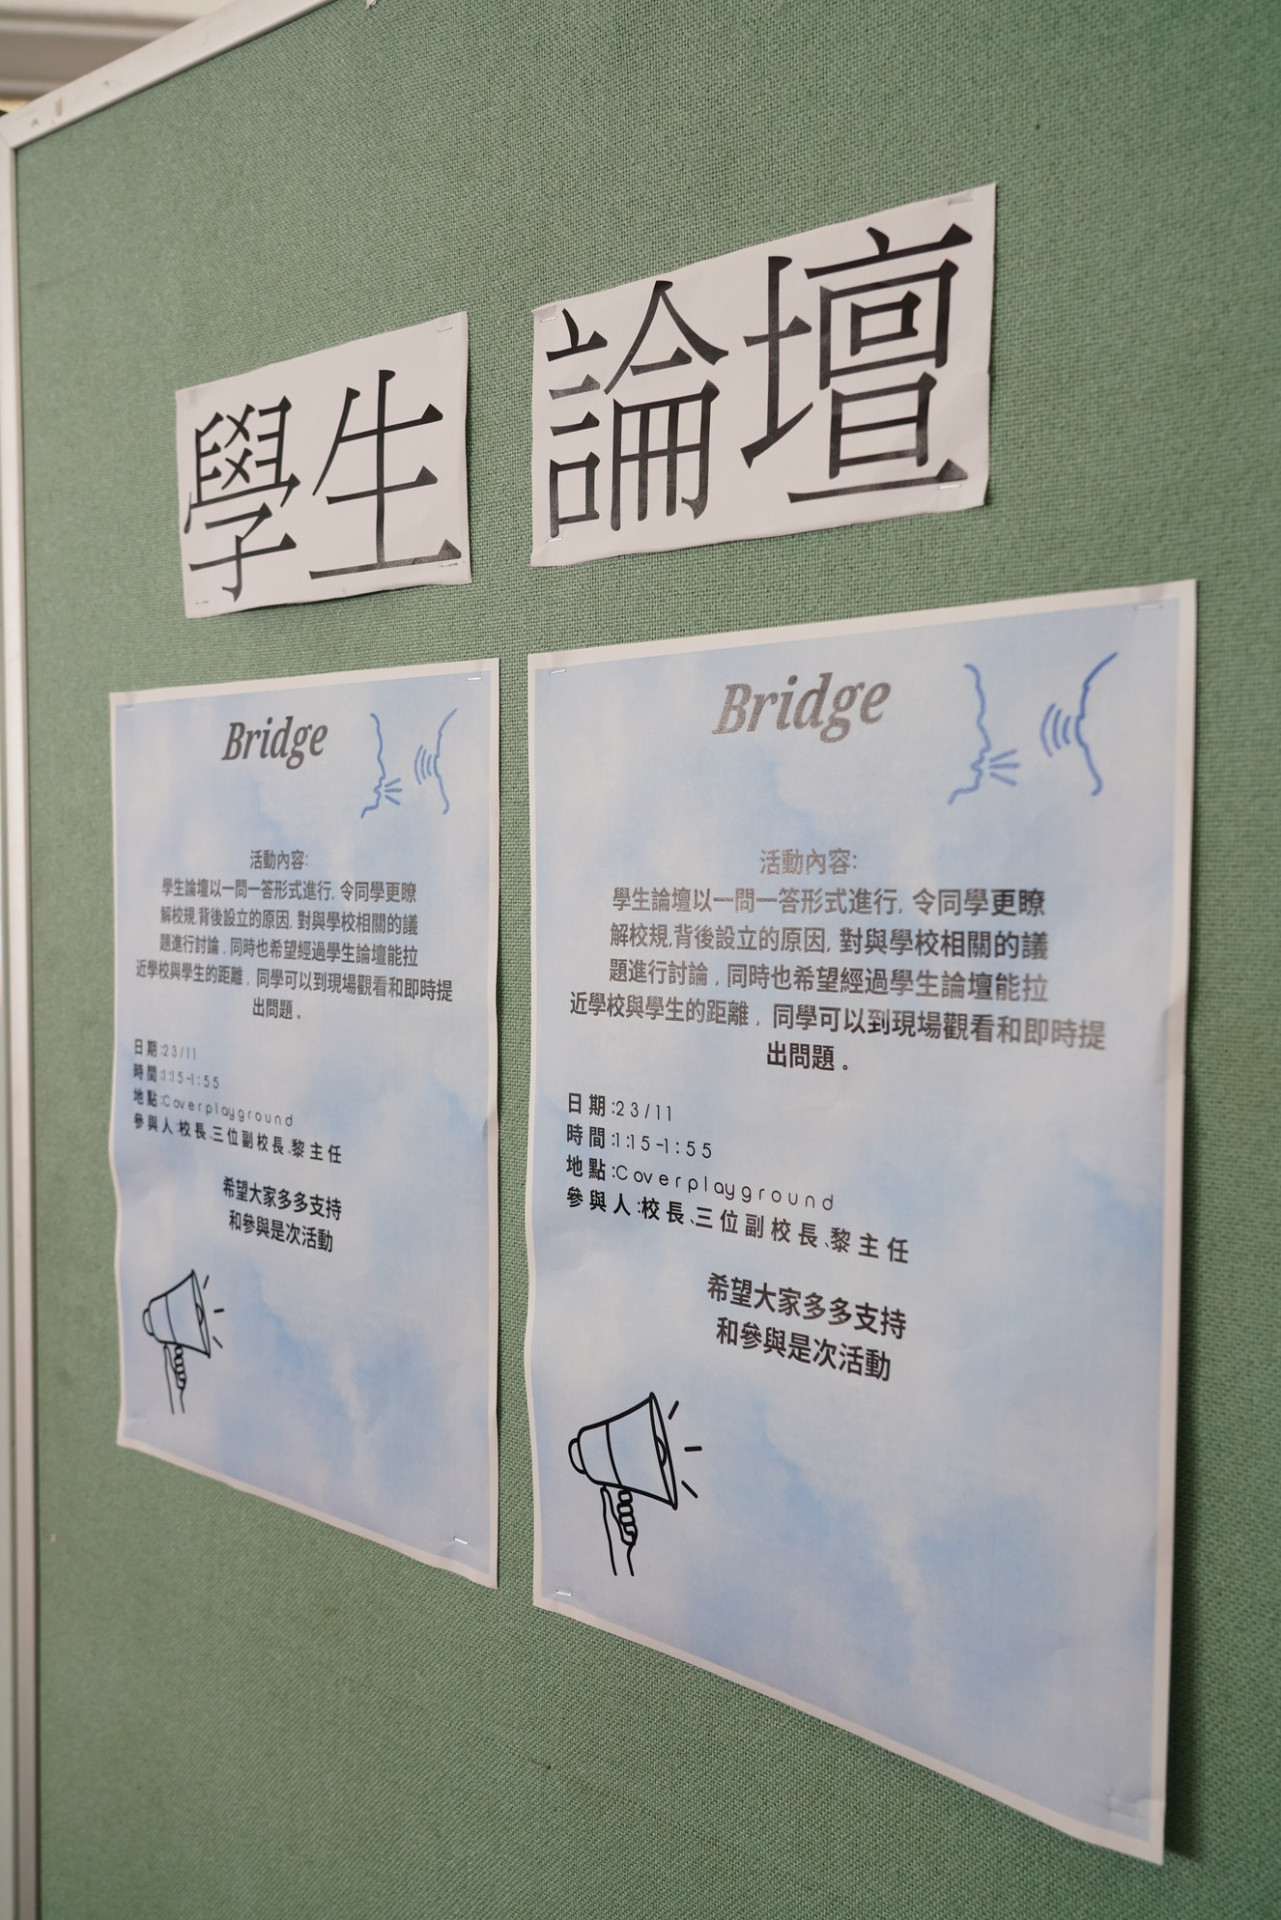 學生 論壇
Bridge
活動內容:
學生論壇以一問一答形式進行, 令同學更瞭
解校規,背後設立的原因, 對與學校相關的議
題進行討論，同時也希望經過學生論壇能拉
近學校與學生的距離，同學可以到現場觀看和即時提
出問題。
日期:23/11
時間:1:15-1:55
地點:Coverplayground
參與人:校長、三位副校長、黎主任
希望大家多多支持
和參與是次活動
Bridge
活動內容:
學生論壇以一問一答形式進行, 令同學更瞭
解校規,背後設立的原因, 對與學校相關的議
題進行討論，同時也希望經過學生論壇能拉
近學校與學生的距離，同學可以到現場觀看和即時提
出問題。
日期:23/11
時間:1:15-1:55
地點:Coverplayground
參與人:校長、三位副校長、黎主任
希望大家多多支持
和參與是次活動